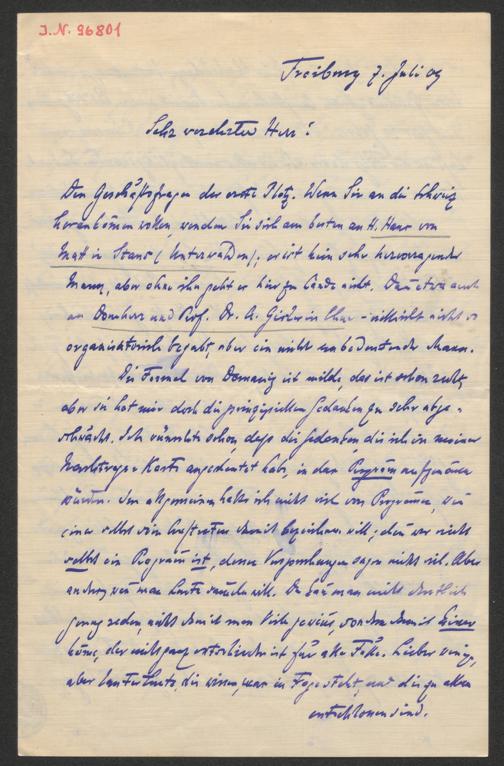 I.N. 96801
Freiburg 7. Juli 09
Sehr verehrter Herr!
Den Geschäftsfragen der erste Platz. Wenn Sie an die Schweiz
herankommen wollen, wenden Sie sich am besten an H. Hans von
Matt in Stans (Unterwalden); er ist kein sehr hervorragender
Mann, aber ohne ihn geht es hier zu Lande nicht. Dann etwa auch
an Domherr und Prof. Dr. A. Gisler in Chur - vielleicht nicht so
organisatorisch begabt, aber ein nicht unbedeutender Mann.
Die Formel von Domanig ist milde, das ist schon recht,
aber sie hat mir doch die prinzipiellen Gedanken zu sehr abge-
schwächt. Ich wünschte schon, dass die Gedanken, die ich in meiner
Karte angedeutet habe, in das Program aufgenommen
würden. Im allgemeinen halte ich nicht viel von Programen, wenn
einer selbst sein damit bezeichnen will; denn wer nicht
selbst ein Program ist, dessen Versprechungen sagen nicht viel. Aber
anders, wenn man Leute sammeln will. Da kann man nicht deutlich
genug reden, nicht damit man Viele gewinne, sondern damit keiner
käme, der nicht ganz entschieden ist für alle Fälle. Lieber wenige,
aber lauter Leute, die wissen, was in Frage steht, und die zu allem
entschlossen sind.